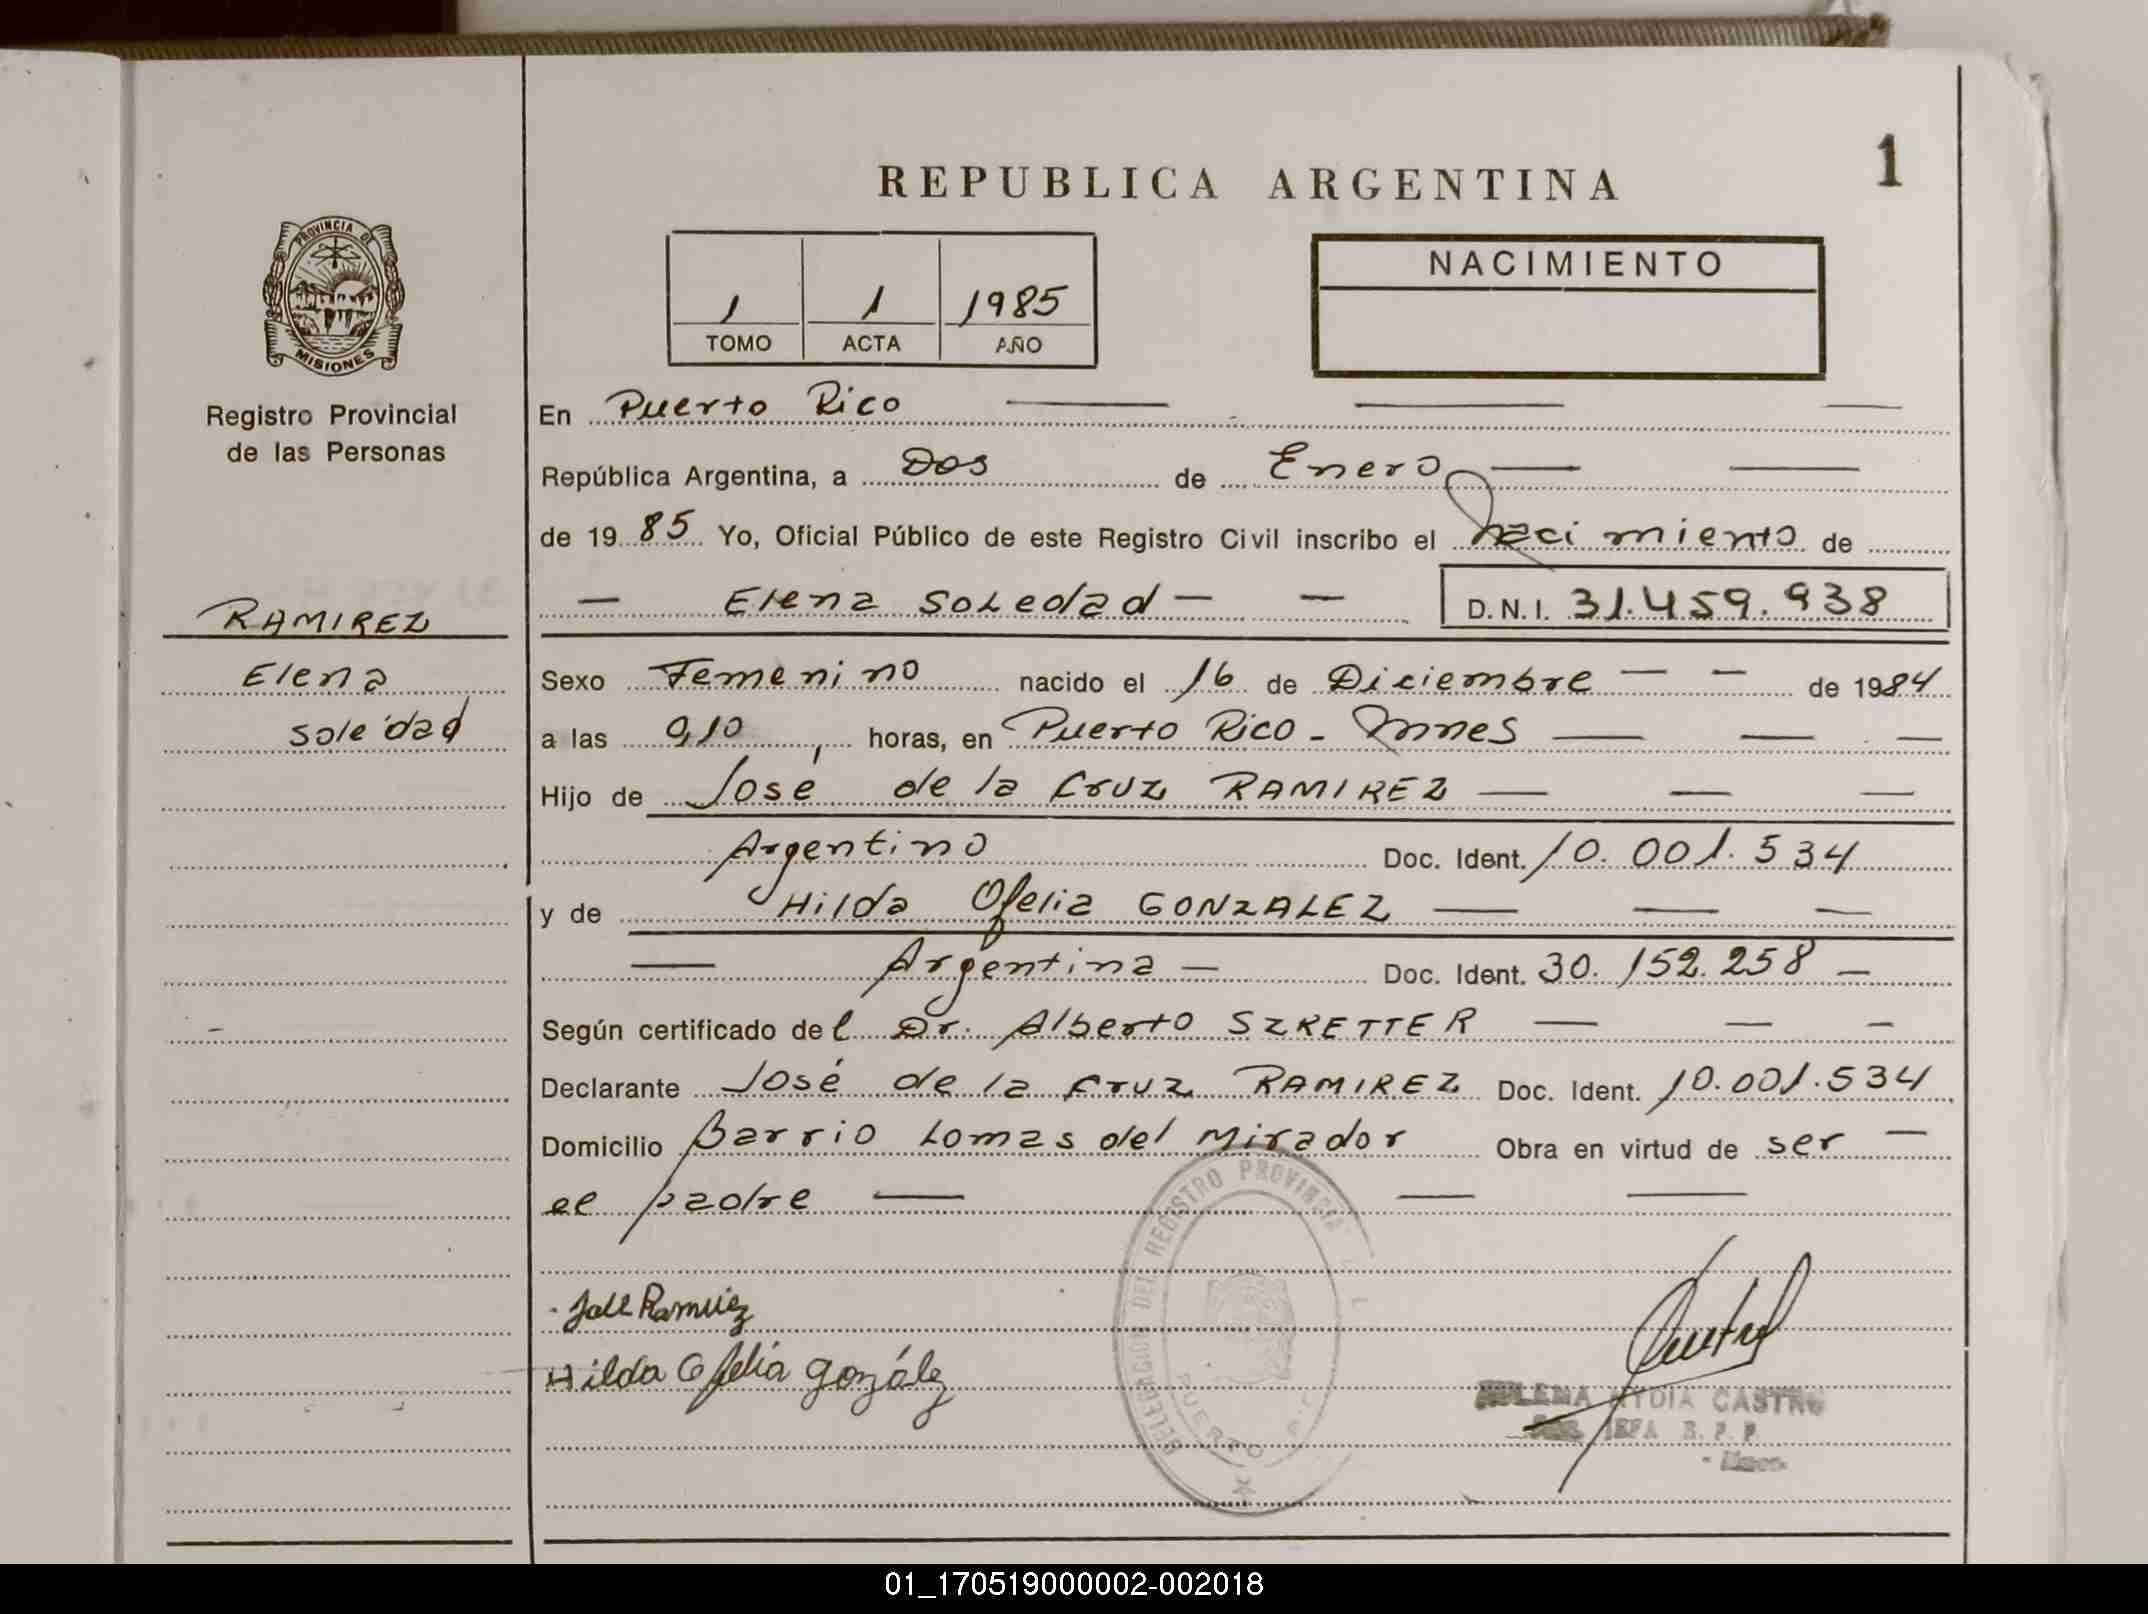 REPUBLICA ARGENTINA
1
PROVINCIA DE
MISIONES
Registro Provincial
de las Personas
1 1 1985
TOMO ACTA AÑO
NACIMIENTO
En Puerto Rico
República Argentina, a Dos de Enero
de 1985 Yo, Oficial Público de este Registro Civil inscribo el nacimiento de
Elena Soledad D.N.I. 31.459.938
RAMIREZ
Elena
Soledad
Sexo Femenino nacido el 16 de Diciembre de 1984
a las 9,10 horas, en Puerto Rico - Mnes
Hijo de José de la Cruz RAMIREZ
Argentino Doc. Ident. 10.001.534
y de Hilda Ofelia GONZALEZ
Argentina Doc. Ident. 30.152.258
Según certificado del Dr. Alberto SZRETTER
Declarante José de la Cruz RAMIREZ Doc. Ident. 10.001.534
Domicilio Barrio Lomas del Mirador Obra en virtud de ser
el padre
José Ramirez
Hilda Ofelia González
DELEGACION DEL REGISTRO PROVINCIAL
PUERTO
NYDIA CASTRO
JEFA R. P. P.
01_170519000002-002018